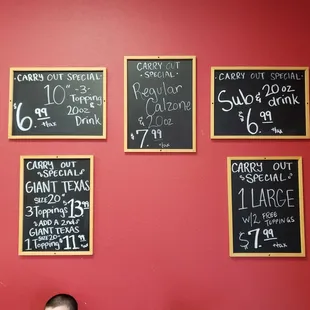 CARRY OUT SPECIAL
10" -3-
Topping
& 20oz
Drink
$6.99
+tax
CARRY OUT
- SPECIAL -
Regular
Calzone
& 20 oz
$7.99
+tax
CARRY OUT SPECIAL
Sub & 20 oz
drink
$6.99
+tax
CARRY OUT
SPECIAL
GIANT TEXAS
SIZE 20"
3 Toppings 13.99
ADD A 2nd
GIANT TEXAS
SIZE 20"
1 Topping $11.99
CARRY OUT
SPECIAL
1 LARGE
W/2 FREE
TOPPINGS
$7.99
+tax